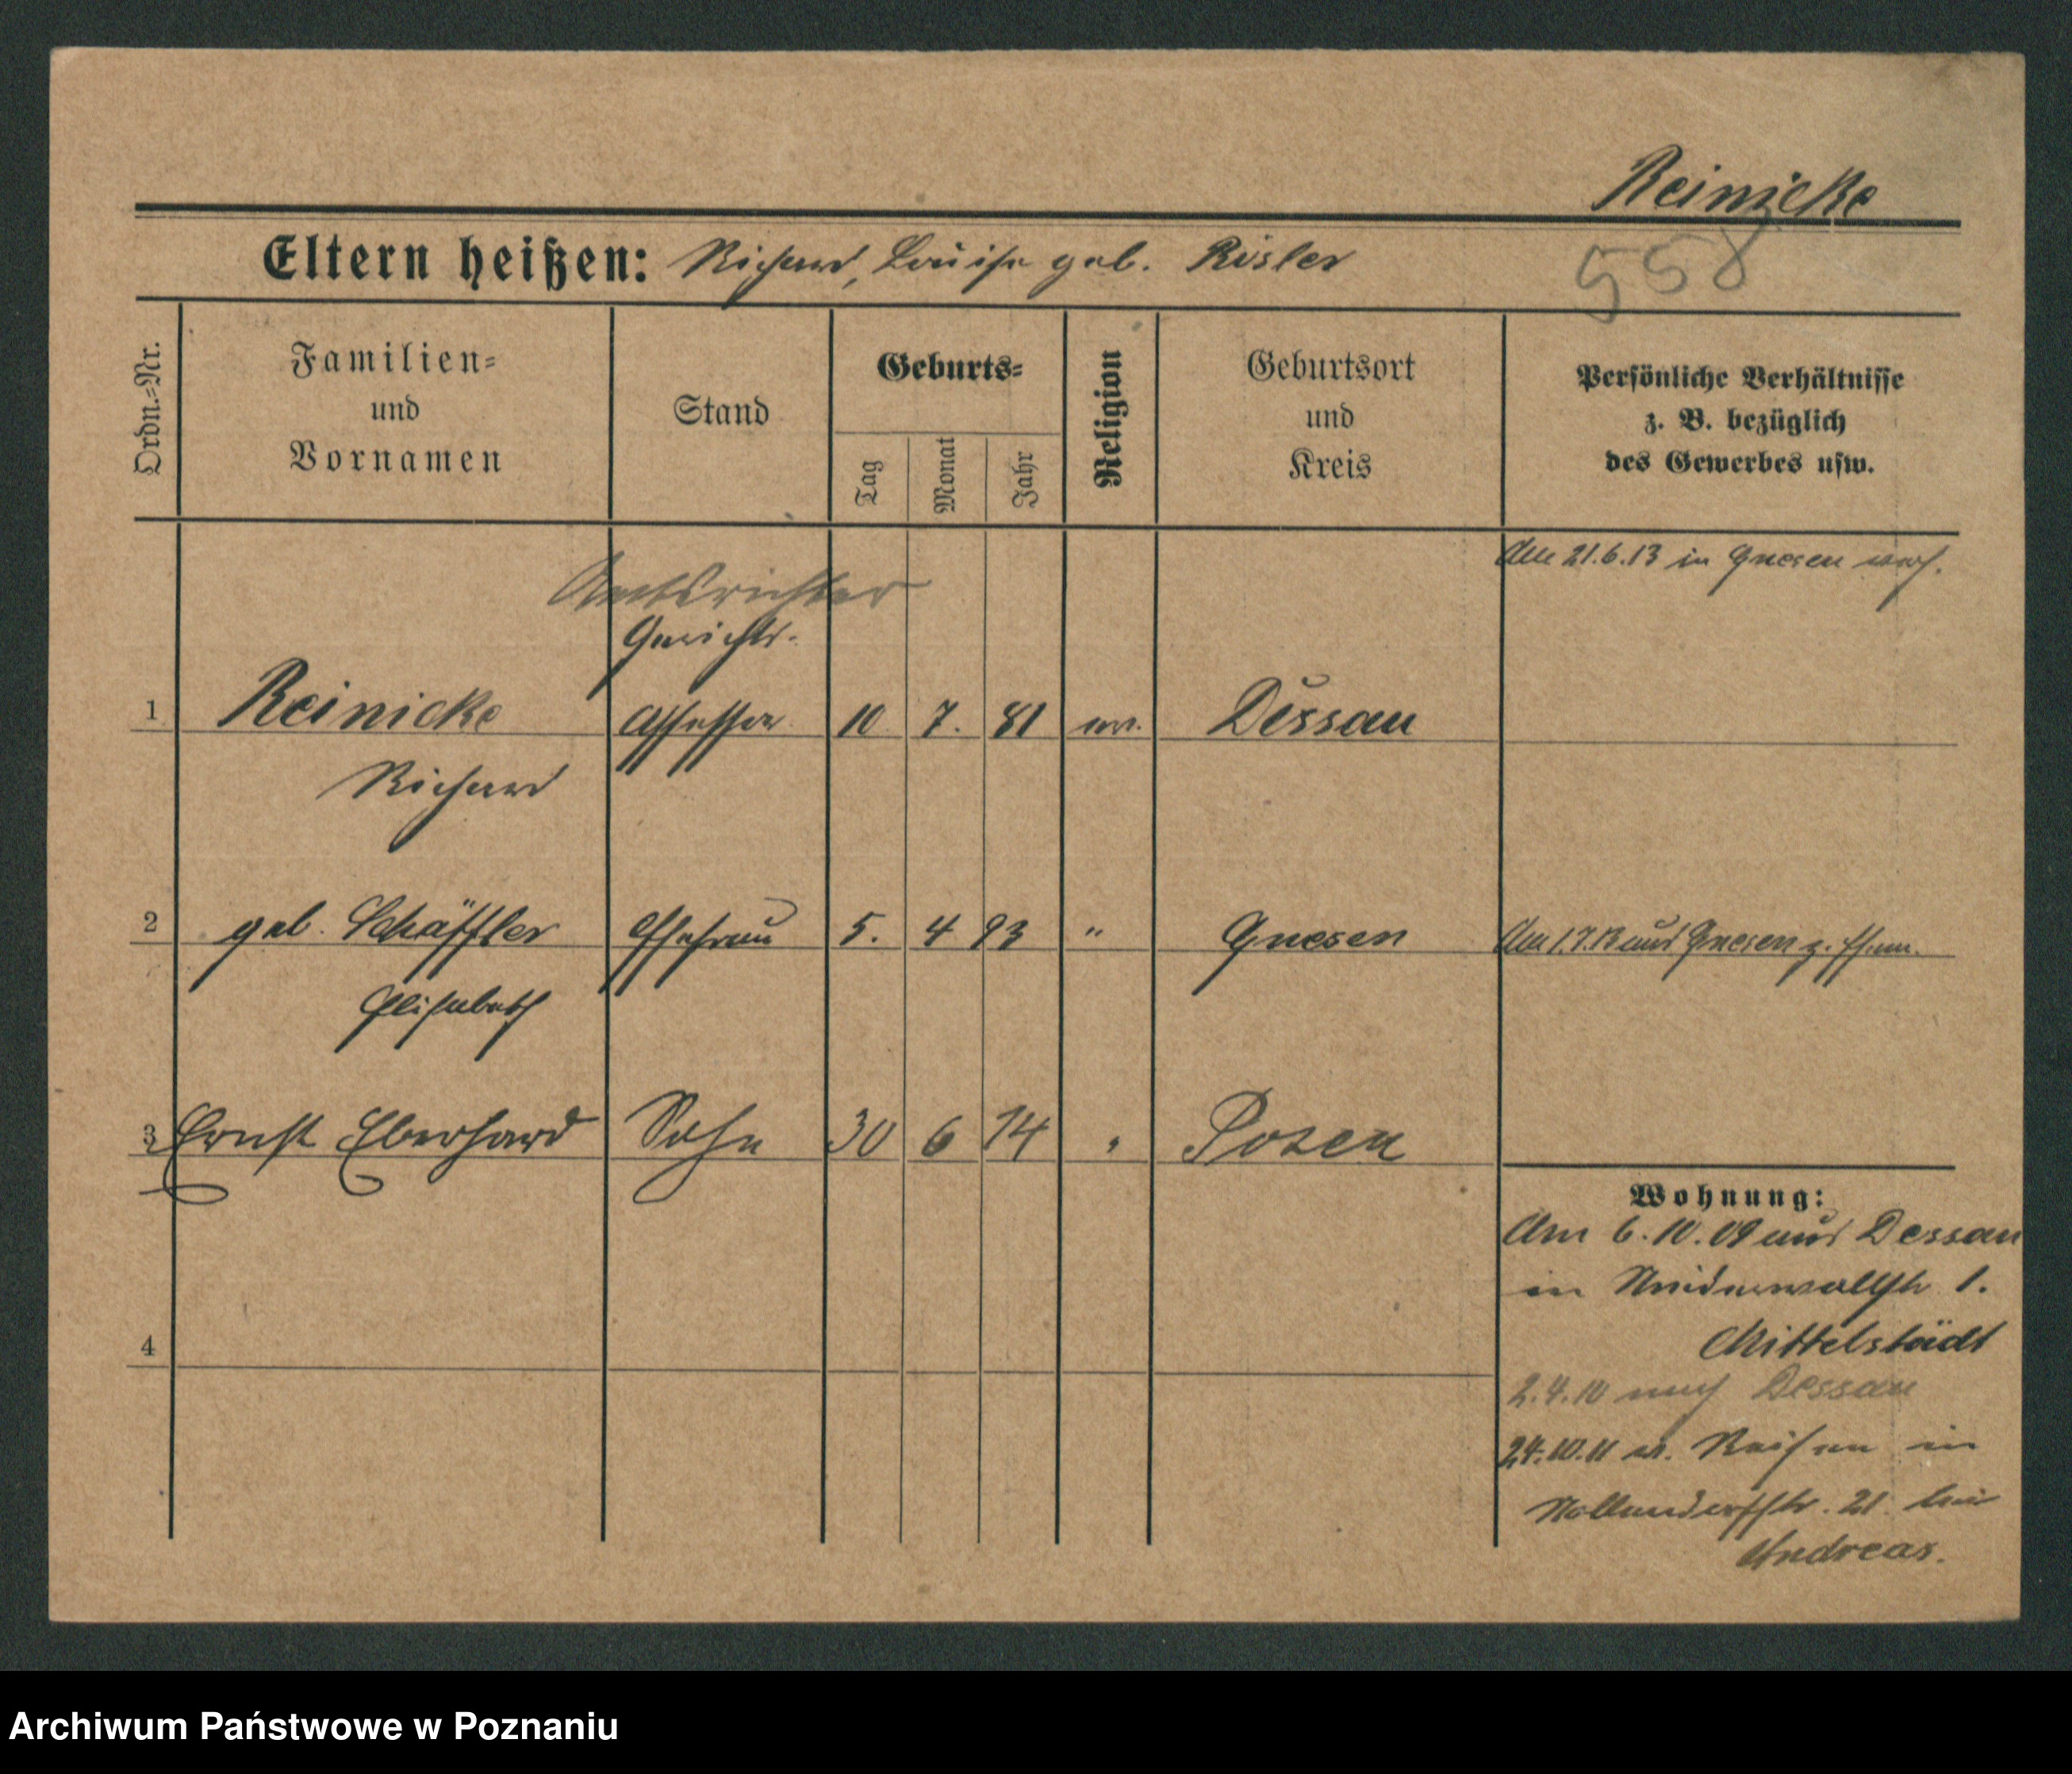 Reinicke
558
Eltern heißen: Richard, Louise geb. Risler
Ordn.=Nr.
Familien=
und
Vornamen
Stand
Geburts=
Tag
Monat
Jahr
Religion
Geburtsort
und
Kreis
Persönliche Verhältnisse
z. B. bezüglich
des Gewerbes usw.
Am 21.6.13 in Gnesen verh.
Amtsrichter
Gerichts-
1 Reinicke Assessor 10 7. 81 ev. Dessau
Richard
2 geb. Schäffler Ehefrau 5. 4 93 " Gnesen Am 1.7.13 aus Gnesen z. Ehem.
Elisabeth
3 Ernst Eberhard Sohn 30 6 14 " Posen
4
Wohnung:
Am 6.10.09 aus Dessau
in 1.
Mittelstädt
2.4.10 nach Dessau
24.10.11 v. Reisen in
Nollendorfstr. 21 bei
Andreas.
Archiwum Państwowe w Poznaniu